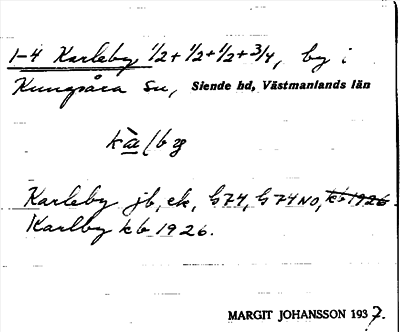 1-4 Karleby 1/2+1/2+1/2+3/4, by i
Kungsåra sn, Siende hd, Västmanlands län
Karleby jb, ek, G74, G74NO, kb 1926.
Karlby kb 1926.
MARGIT JOHANSSON 1937.